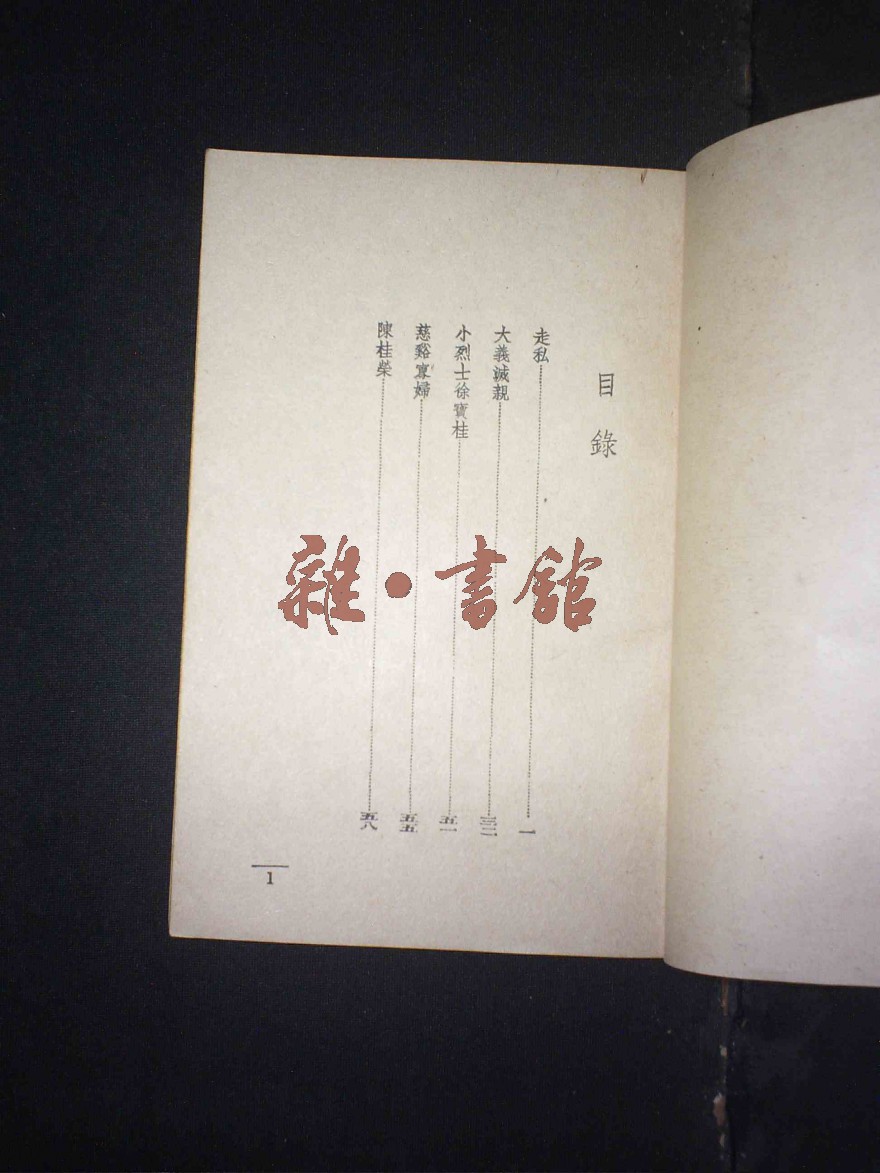 目錄
走私 一
大義滅親 三二
小烈士徐寶桂 五一
慈谿寡婦 五五
陳桂榮 五八
1
雜·書館